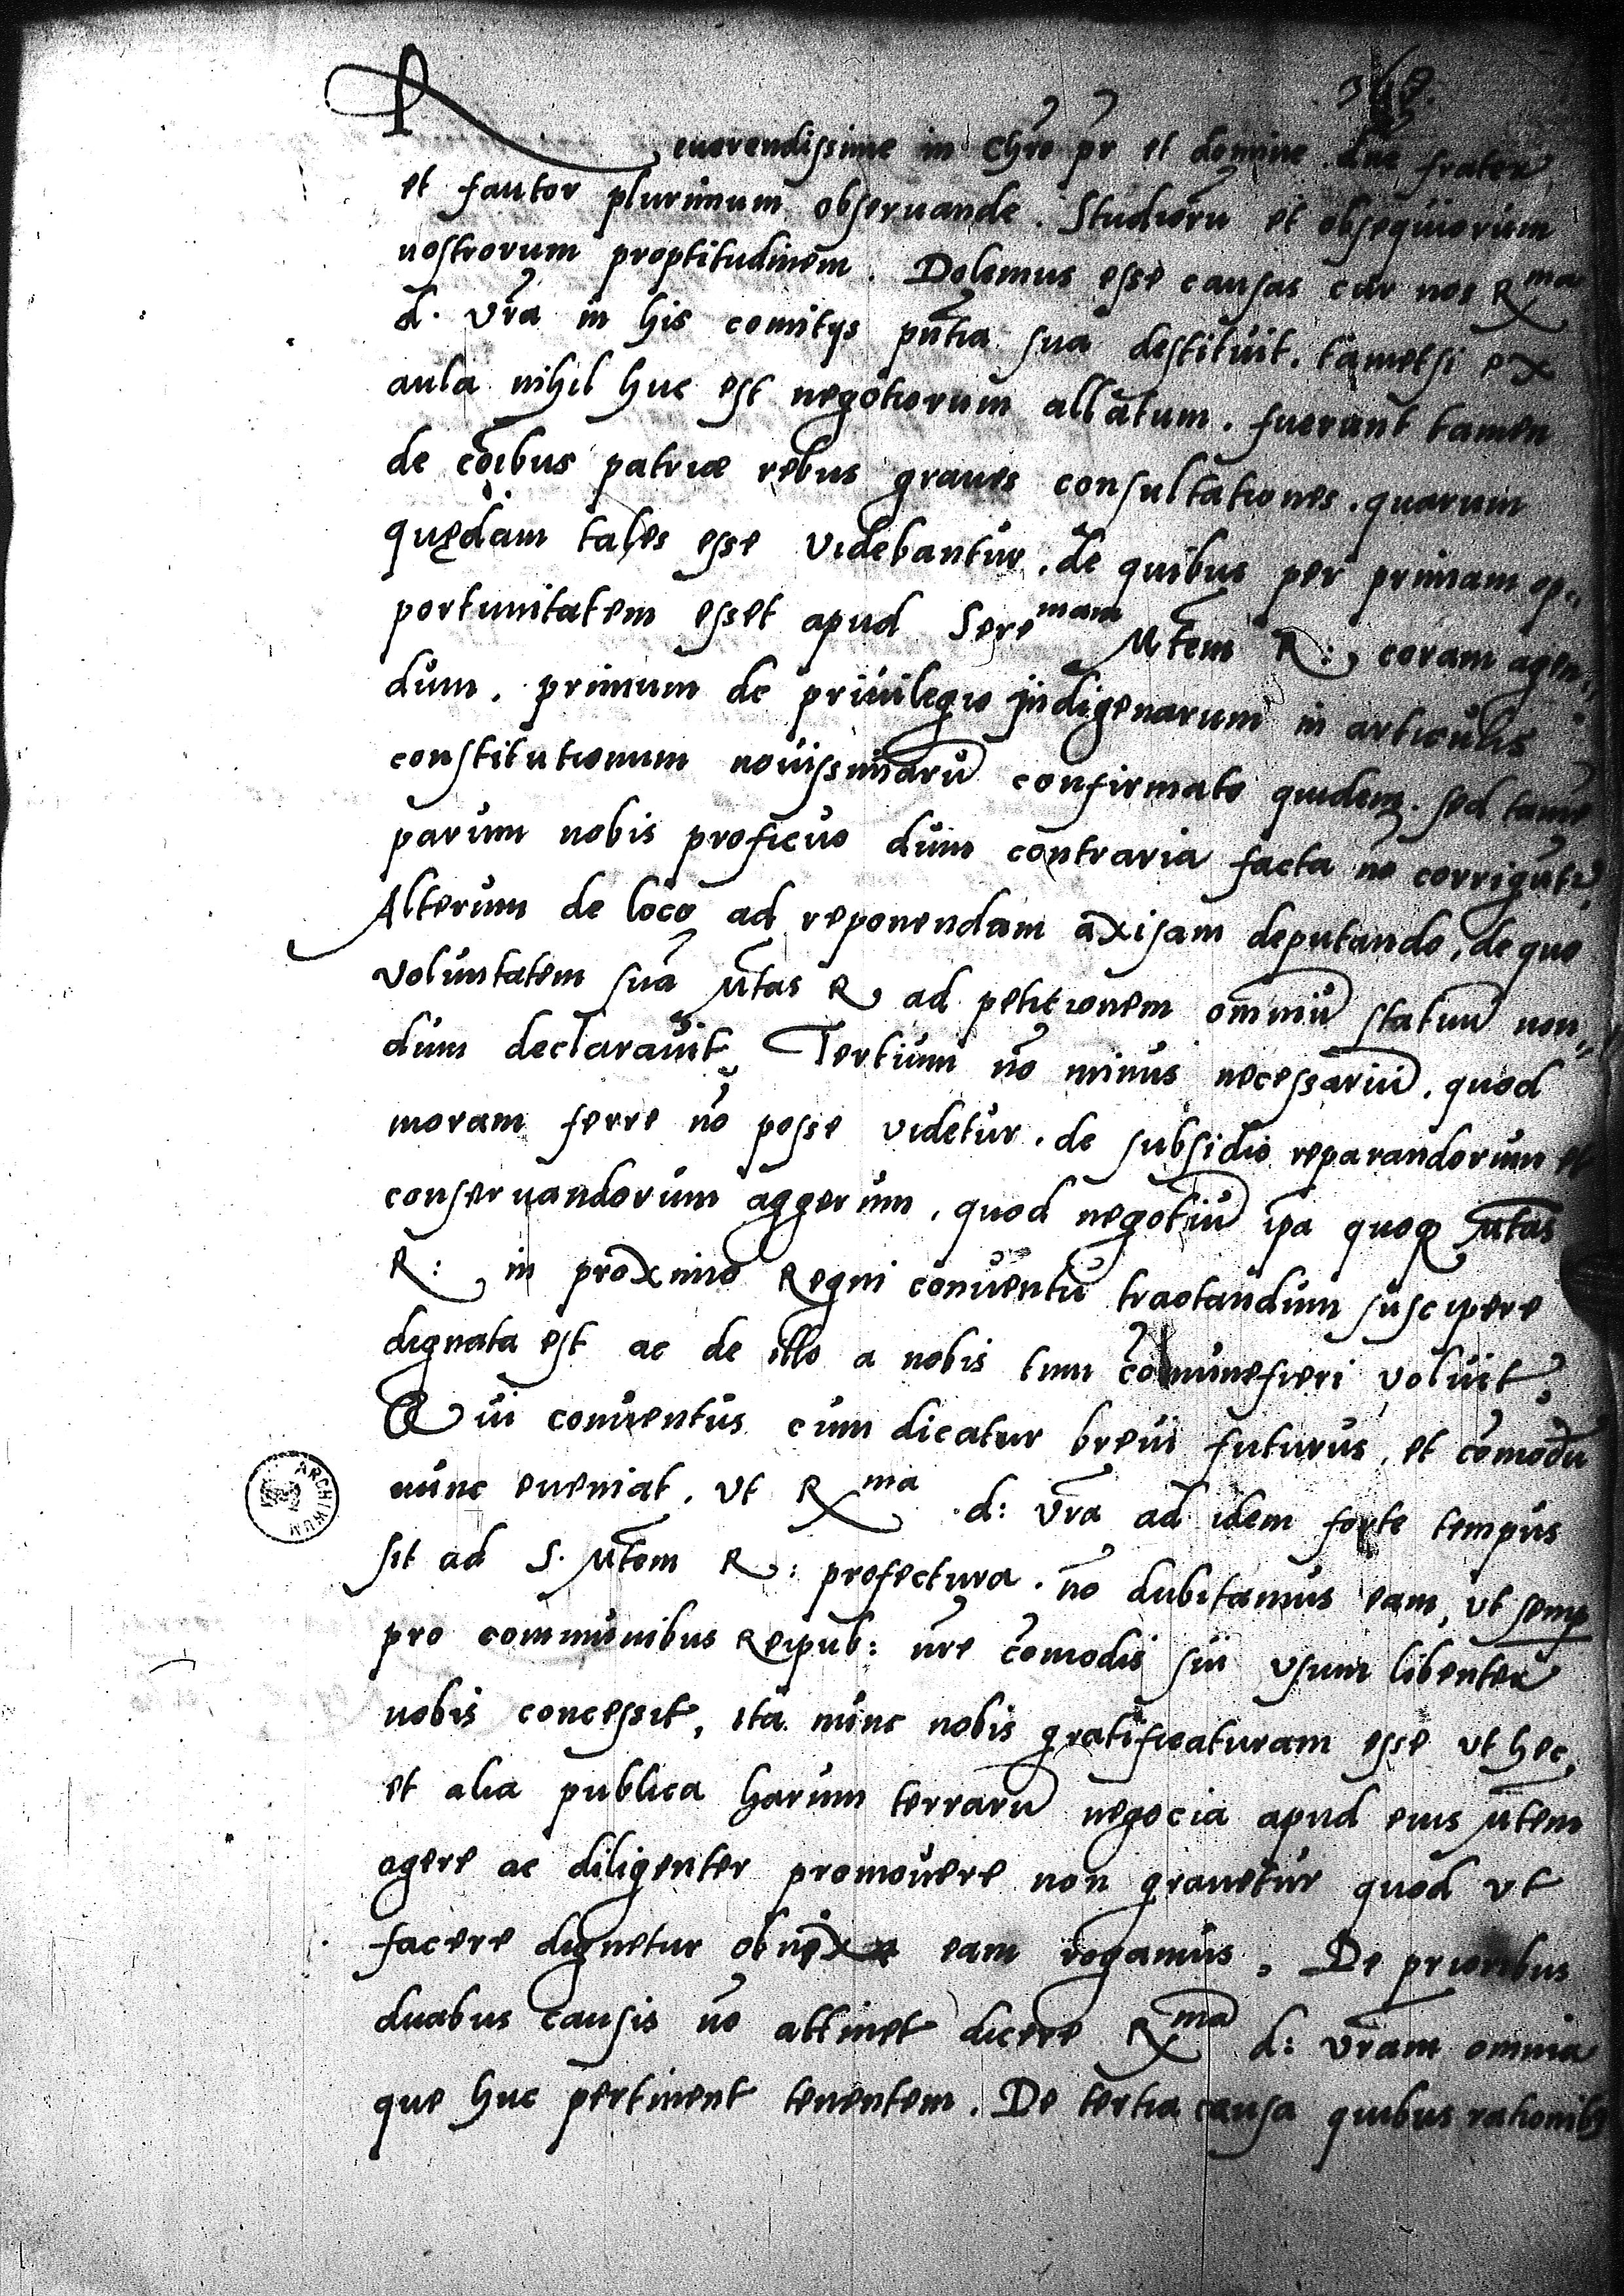 Reuerendissime in Chro pr et domine dne frater
et fautor plurimum obseruande. Studiorũ et obsequiorum
nostrorum proptitudinem. Dolemus esse causas cur nos Rma
d. vra in his comitijs pñtia sua destituit. tametsi ex
aula nihil huc est negotiorum allatum. fuerunt tamen
de cõibus patriæ rebus graues consultationes. quarum
quędam tales esse videbantur. de quibus per primam op-
portunitatem esset apud Seremam Mtem R: coram agen-
dum. primum de priuilegio jndigenarum in articulis
constitutionum nouissimarũ confirmato quidem. sed tamẽ
parum nobis proficuo dum contraria facta nõ corrigũtur
Alterum de loco ad reponendam axisam deputando, de quo
voluntatem suã Mtas R ad petitionem omniũ statuũ non-
dum declarauit. Tertium nõ minus necessariũ. quod
moram ferre nõ posse videtur. de subsidio reparandorum et
conseruandorum aggerum, quod negotiũ ipa quoq Mtas
R: in proximo Regni conuentu tractandum suscipere
dignata est ac de illo a nobis tum cõmunefieri voluit.
Qui conuentus cum dicatur breui futurus, et cõmodũ
nunc eueniat. vt Rma d: vra ad idem forte tempus
sit ad S. Mtem R: profectura. nõ dubitamus eam, vt semp
pro communibus Reipub: nre cõmodis sui vsum libenter
nobis concessit, ita nunc nobis gratificaturam esse vt hec
et alia publica harum terrarũ negocia apud eius Mtem
agere ac diligenter promouere non grauetur quod vt
facere dignetur obnixe eam rogamus. De prioribus
duabus causis nõ attinet dicere Rma d: vram omnia
que huc pertinent tenentem. De tertia causa quibus rationibq
ARCHIWUM